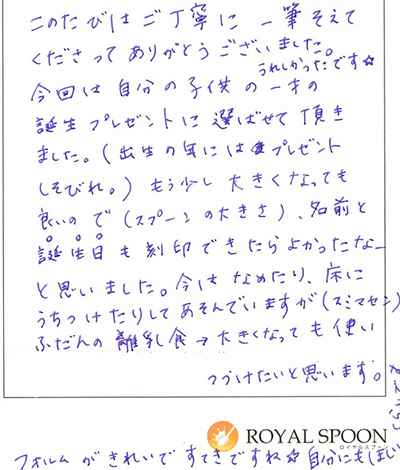 このたびはご丁寧に一筆そえて
くださってありがとうございました。
うれしかったです☆
今回は自分の子供の一才の
誕生プレゼントに選ばせて頂き
ました。(出生の年にはプレゼント
しそびれ。)もう少し大きくなっても
良いので(スプーンの大きさ)、名前と
誕生日も刻印できたらよかったなー
と思いました。今はなめたり、床に
うちつけたりしてあそんでいますが(スミマセン)
ふだんの離乳食→大きくなっても使い
つづけたいと思います。
ROYAL SPOON
ロイヤルスプーン
フォルムがきれいですてきですね☆自分にもほしい